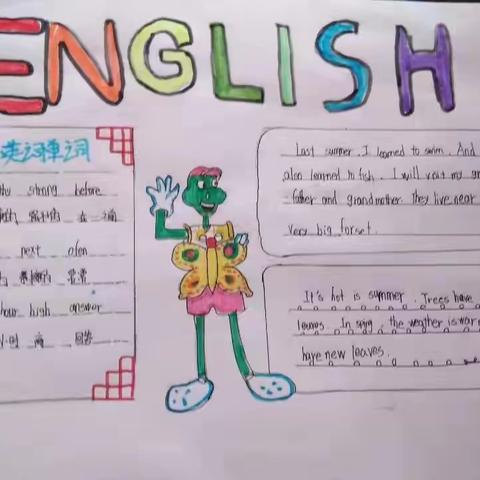 ENGLISH
单词
strong before
next ofen
常常
hour high answer
小时 高 回答
Last summer. I learned to swim. And
also learned to fish. I will visit my
father and grandmother. They live near
very big forset.
It's hot is summer. Trees have
leaves. In spring, the weather is war
have new leaves.